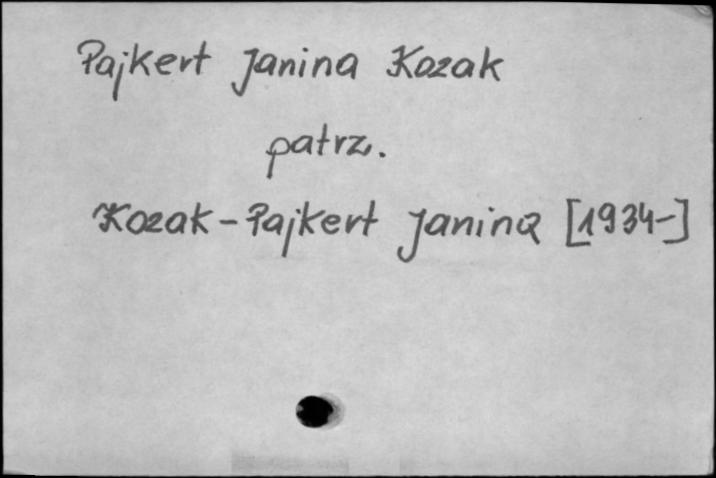 Pajkert Janina Kozak
patrz.
Kozak-Pajkert Janina [1934-]